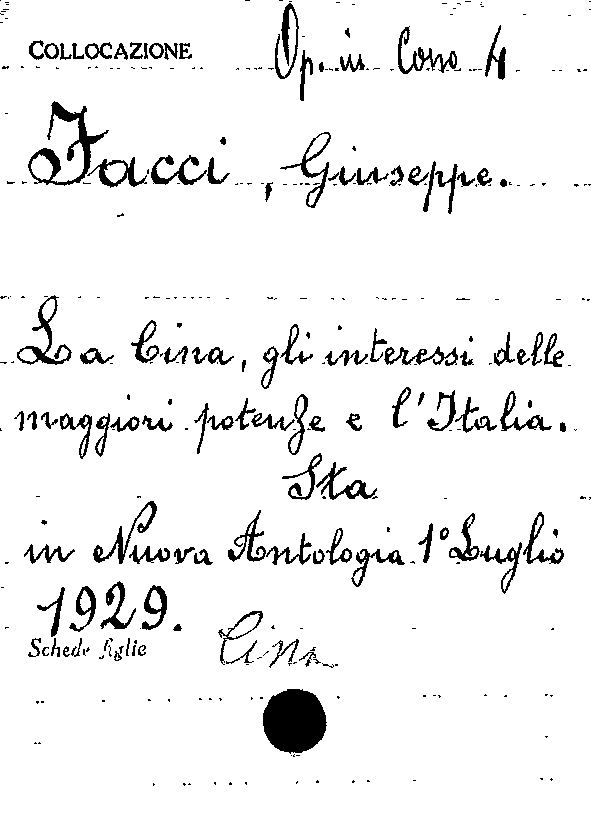 COLLOCAZIONE Op. in Cons 4
Facci, Giuseppe.
La Cina, gli interessi delle
maggiori potenze e l'Italia.
Sta
in Nuova Antologia 1° Luglio
1929.
Schede figlie Cina